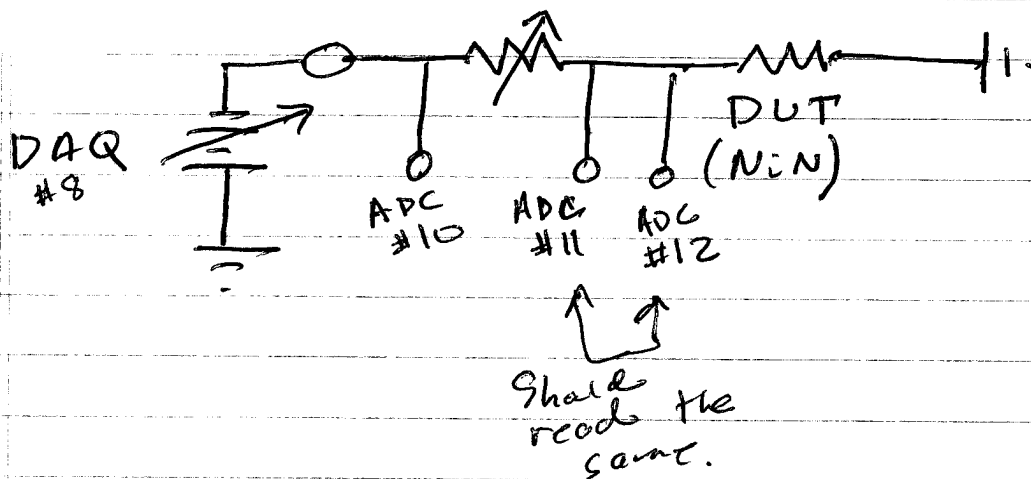 DAQ
#8
ADC
#10
ADC
#11
ADC
#12
DUT
(NiN)
Should
read the
same.